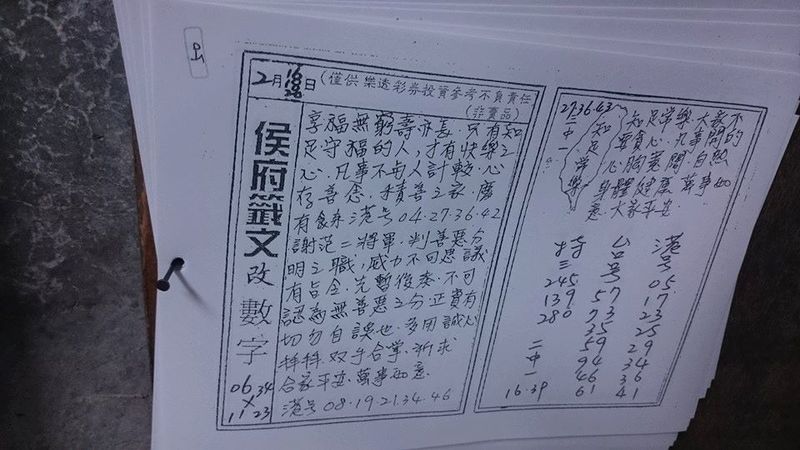 2月16日(僅供樂透彩券投資參考不負責任
(非賣品)
侯府籤文
改數字
06 34
×
11 23
享福無窮壽亦長．只有知
足守福的人，才有快樂之
心．凡事不與人計較．心
存善念．積善之家．慶
有食来港号04.27.36.42
謝范二將軍．判善惡分
明之職，威力不可思議
有旨令．先暫後委．不可
認為無善惡之分．正貴有
切勿自誤也．多用誠心
拜拜．双手合掌．祈求
合家平安．萬事如意．
港号08.19.21.34.46
27.36.43
二中一
知足常樂
知足常樂．大家不
要貪心．凡事開的
心胸寬闊．自然
身體健康．萬事如
意．大家平安．
港号
05
17
23
25
29
34
36
41
台号
57
73
35
59
94
46
61
特三
245
139
280
二中一
16.39